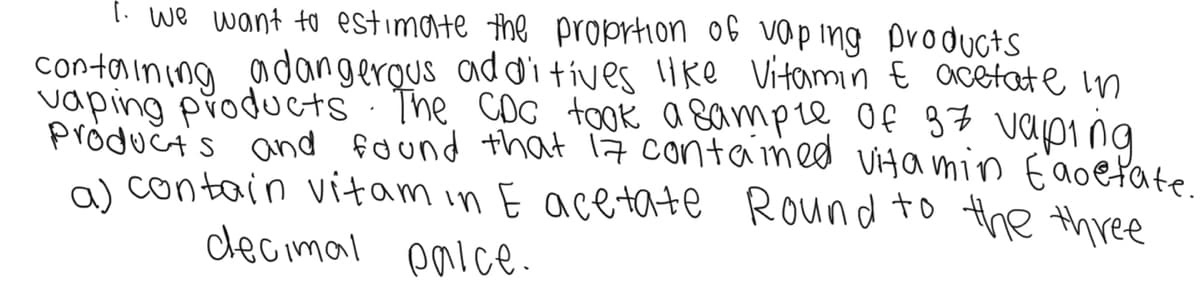 1. we want to estimate the proprtion of vaping products
containing adangerous additives like Vitamin E acetate in
vaping products. The CDC took a sample of 37 vaping
products and found that 17 contained vitamin E aoetate.
a) contain vitamin E acetate Round to the three
decimal palce.